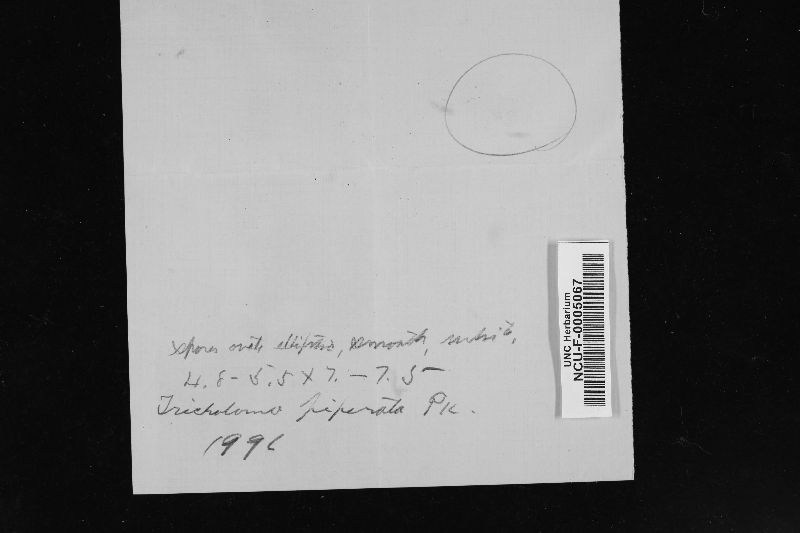 UNC Herbarium
NCU-F-0005067
Spores ovate elliptic, smooth,
4.8-5.5 X 7.-7.5
Tricholoma piperata Pk.
199